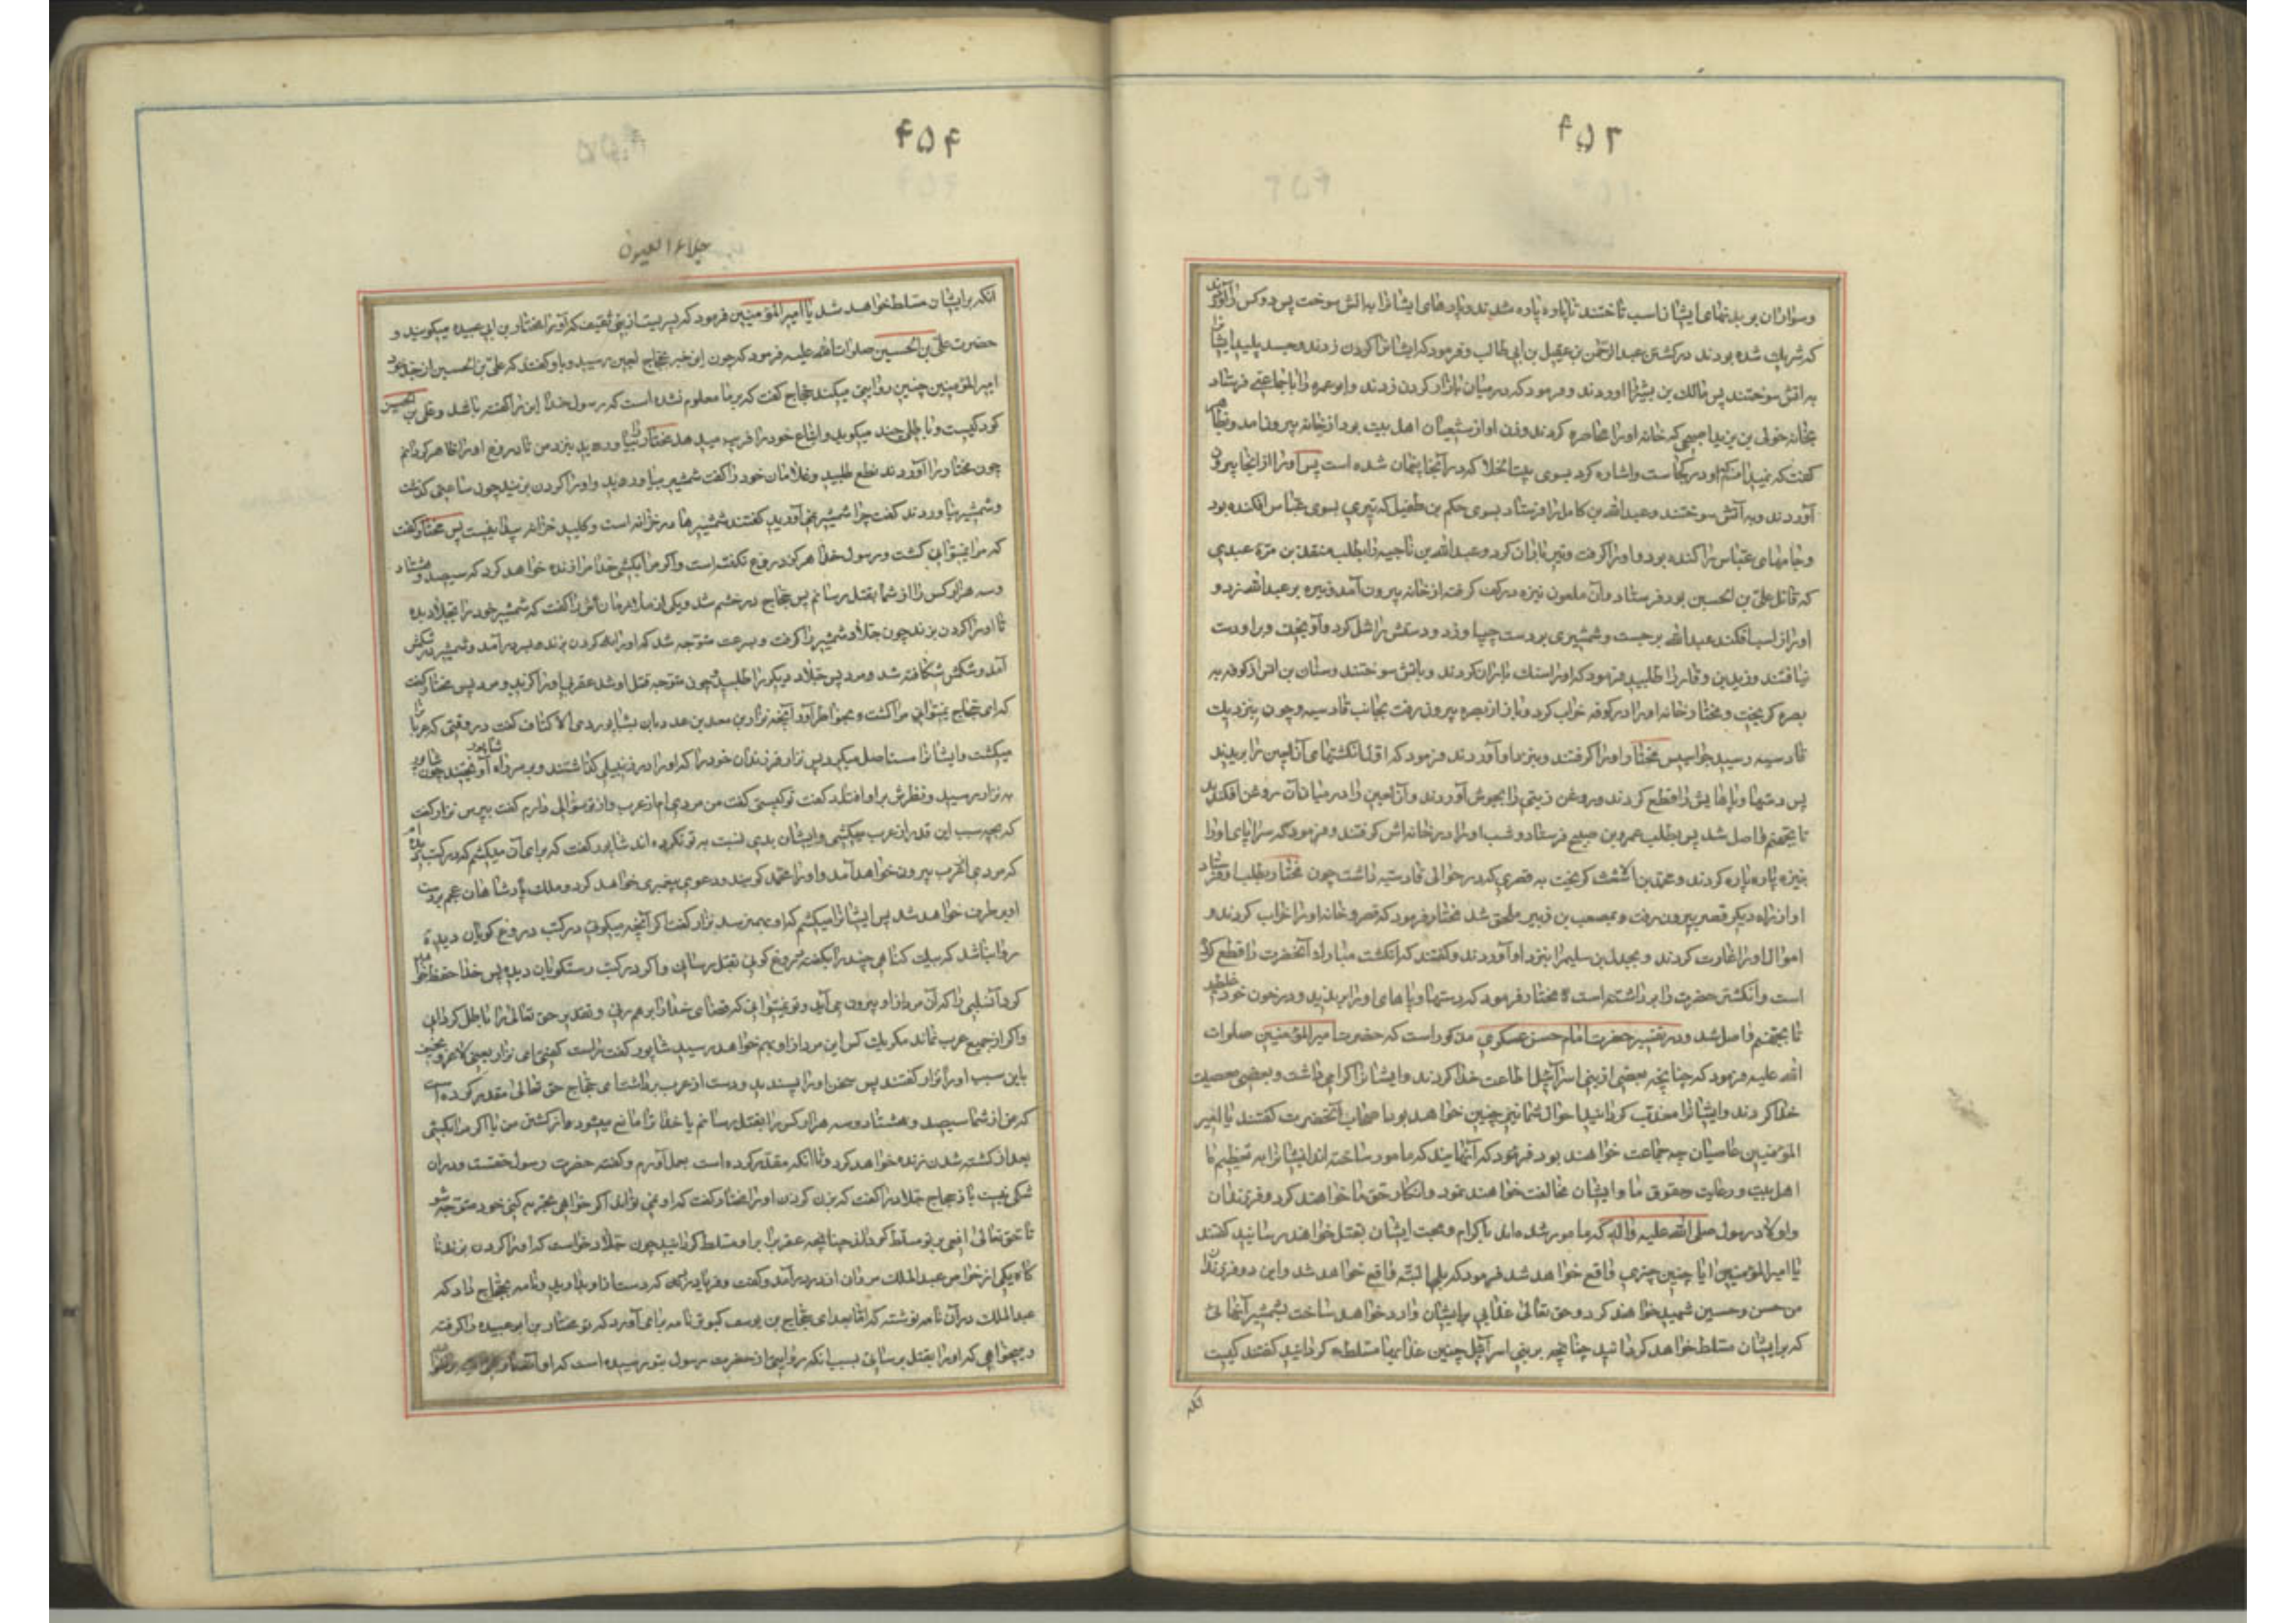 ۴۵۳
وسواران بر بدنهای ایشان اسب تاختند تا پاره پاره شدند و پارهای ایشانرا به اتش سوخت پس دو کس را آوردند
که شریک شده بودند در کشتن عبدالرحمن بن عقیل بن ابی طالب و فرمود که ایشانرا گردن زدند و جسد پلید ایشانرا
به اتش سوختند پس مالک بن بشیر را اوردند و فرمود که در میان بازار گردن زدند و ابو عمره را با جماعتی فرستاد
بخانه خولی بن یزید اصبحی که خانه او را محاصره کردند و زن او از شیعیان اهل بیت بود از خانه بیرون آمد و بظاهر
گفت که نمیدانم او در کجاست و اشاره کرد بسوی بیت الخلا که در آنجا پنهان شده است پس او را از انجا بیرون
آوردند و به آتش سوختند و عبدالله بن کامل را فرستاد بسوی حکم بن طفیل که تیری بسوی عباس افکنده بود
و جامهای عباس را کنده بود و او را گرفت و تیر باران کرد و عبدالله بن ناجیه را بطلب منقذ بن مره عبدی
که قاتل علی بن الحسین بود فرستاد و آن ملعون نیزه در کف گرفته از خانه بیرون آمد و نیزه بر عبدالله زد و
او را از اسب افکند عبدالله برجست و شمشیری بر دست چپ او زد و دستش را شل کرد و او گریخت و بر او دست
نیافتند و زید بن وقاد را طلبید فرمود که او را سنک باران کردند و باتش سوختند و سنان بن انس از کوفه به
بصره گریخت و مختار خانه او را در کوفه خراب کرد و باز از بصره بیرون رفت بجانب قادسیه و چون بنزدیک
قادسیه رسید جواسیس مختار او را گرفتند و بنزد او آوردند فرمود که اول انگشتهای آن لعین را بریدند
پس دستها و پاهایش را قطع کردند و روغن زیتی را بجوش آوردند و آن لعین را در میان آن روغن افکندند
تا بجهنم واصل شد پس بطلب عمرو بن صبیح فرستاد و شب او را در خانه اش گرفتند و فرمود که سراپای او را
بنیزه پاره پاره کردند و محمد بن اشعث گریخت به قصری که در حوالی قادسیه داشت چون مختار بطلب او فرستاد
او از راه دیگر قصر بیرون رفت و بمصعب بن زبیر ملحق شد مختار فرمود که قصر و خانه او را خراب کردند و
اموال او را غارت کردند و بجدل بن سلیم را بنزد او آوردند و گفتند که انگشت مبارک آنحضرت را قطع کرده
است و انگشتر حضرت را برداشته است مختار فرمود که دستها و پاهای او را بریدند و در خون خود میغلطید
تا بجهنم واصل شد و در تفسیر حضرت امام حسن عسکری مذکور است که حضرت امیر المؤمنین صلوات
الله علیه فرمود که چنانچه بعضی از بنی اسرائیل اطاعت خدا کردند و ایشانرا گرامی داشت و بعضی معصیت
خدا کردند و ایشانرا معذب گردانید احوال شما نیز چنین خواهد بود اصحاب آنحضرت گفتند یا امیر
المؤمنین عاصیان چه جماعت خواهند بود فرمود که آنهایند که مامور ساخته اند ایشانرا به تعظیم ما
اهل بیت و رعایت حقوق ما و ایشان مخالفت خواهند نمود و انکار حق ما خواهند کرد و فرزندان
و اولاد رسول صلی الله علیه و اله که مامور شده اند باکرام و محبت ایشان بقتل خواهند رسانید گفتند
یا امیرالمؤمنین ایا چنین چیزی واقع خواهد شد فرمود که بلی البته واقع خواهد شد و این دو فرزندان
من حسن و حسین شهید خواهند کرد و حق تعالی عذابی بر ایشان وارد خواهد ساخت بشمشیر آنهائی
که بر ایشان مسلط خواهد گردانید چنانچه بر بنی اسرائیل چنین عذابها مسلط گردانید گفتند کیست
آنکه
۴۵۴
جلاء العیون
انکه بر ایشان مسلط خواهد شد یا امیر المؤمنین فرمود که پسریست از بنی ثقیف که او را مختار بن ابی عبیده میگویند و
حضرت علی بن الحسین صلوات الله علیه فرمود که چون این خبر بحجاج لعین رسید و باو گفتند که علی بن الحسین از جد خود
امیر المؤمنین چنین روایتی میکند حجاج گفت که بر ما معلوم نشده است که رسول خدا این را گفته باشد و علی بن الحسین
کودکیست و باطلی چند میگوید و اتباع خود را فریب میدهد مختار را بیاورید بنزد من تا دروغ او را ظاهر گردانم
چون مختار را آوردند نطع طلبید و غلامان خود را گفت شمشیر بیاورید و او را گردن بزنید چون ساعتی گذشت
و شمشیر نیاوردند گفت چرا شمشیر نمی آورید گفتند شمشیرها در خزانه است و کلید خزانه پیدا نیست پس مختار گفت
که مرا نمیتوانی کشت و رسول خدا هرگز دروغ نگفته است و اگر مرا بکشی خدا مرا زنده خواهد کرد که سیصد و هشتاد
و سه هزار کس را از شما بقتل رسانم پس حجاج در خشم شد و یکی از ملازمانش را گفت که شمشیر خود را بجلاد بده
تا او را گردن بزند چون جلاد شمشیر را گرفت و بسرعت متوجه شد که او را گردن بزند بسر در آمد و شمشیر در شکمش
آمد و شکمش شکافته شد و مرد پس جلاد دیگر را طلبید چون متوجه قتل او شد عقربی او را گزید و مرد پس مختار گفت
که ای حجاج نمیتوانی مرا کشت و بخواطر آور آنچه نزار بن معد بن عدنان بشاپور ذی الاکتاف گفت در وقتی که عربانرا
میکشت و ایشانرا مستاصل میکرد پس نزار فرزندان خود را که او را در زنبیلی گذاشتند و بر سر راه شاپور آویختند چون شاپور
به نزار رسید و نظرش بر او افتاد گفت تو کیستی گفت من مردی ام از عرب و از تو سؤالی دارم گفت بپرس نزار گفت
که بچه سبب این قدر از عرب میکشی و ایشان بدی نسبت به تو نکرده اند شاپور گفت که برای آن میکشم که در کتب دیده ام
که مردی از عرب بیرون خواهد آمد و او را محمد گویند و دعوی پیغمبری خواهد کرد و ملک پادشاهان عجم بر دست
او برطرف خواهد شد پس ایشانرا میکشم که او بهم نرسد نزار گفت اگر آنچه میگوئی در کتب دروغ گویان دیدهٔ
روا نباشد که بیگناهی چند را بگفته دروغ گوئی بقتل رسانی و اگر در کتب راستگویان دیده پس خدا حفظ خواهد
کرد آن اصلی را که آن مرد از او بیرون می آید و تو نمیتوانی که قضای خدا را برهم زنی و تقدیر حق تعالی را باطل گردانی
و اگر از جمیع عرب نماند مگر یک کس این مرد از او بهم خواهد رسید شاپور گفت راست گفتی ای نزار یعنی لاغر و نحیف
باین سبب او را نزار گفتند پس سخن او را پسندید و دست از عرب برداشت ای حجاج حق تعالی مقدر کرده است
که من از شما سیصد و هشتاد و سه هزار کس را بقتل رسانم یا خدا ترا مانع میشود از کشتن من یا اگر مرا بکشی
بعد از کشته شدن زنده خواهد کرد تا انکه مقدر کرده است بعمل آورم و گفته حضرت رسول حقست و در ان
شکی نیست باز حجاج جلاد را گفت که بزن گردن او را مختار گفت که او نمی تواند اگر خواهی تجربه کنی خود متوجه شو
تا حق تعالی افعی بر تو مسلط گرداند چنانچه عقرب را بر او مسلط گردانید چون جلاد خواست که او را گردن بزند نا
گاه یکی از خواص عبدالملک مروان از در درآمد و گفت و فریاد زد که دست از او بدارید و نامه بحجاج داد که
عبدالملک در آن نامه نوشته که اما بعد ای حجاج بن یوسف کبوتر نامه برای آورد که تو مختار بن ابو عبیده را گرفته
و میخواهی که او را بقتل برسانی بسبب انکه روایتی از حضرت رسول بتو رسیده است که او